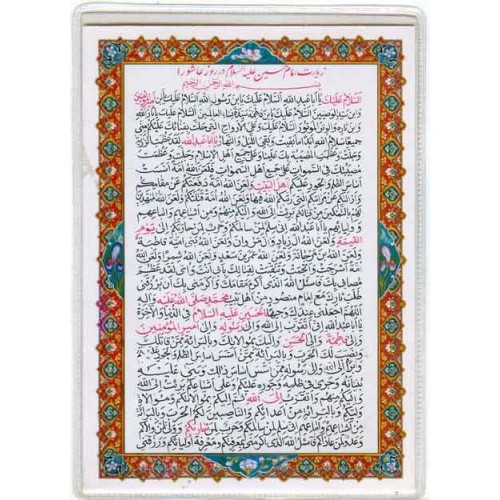 زیارت امام حسین علیه السلام در روز عاشورا
بسم الله الرحمن الرحیم
اَلسَّلامُ عَلَيْكَ يا اَبا عَبْدِ اللهِ اَلسَّلامُ عَلَيْكَ يَابْنَ رَسُولِ اللهِ اَلسَّلامُ عَلَيْكَ يَابْنَ اَميرِ الْمُؤْمِنينَ
وَابْنَ سَيِّدِ الْوَصِيّينَ اَلسَّلامُ عَلَيْكَ يَابْنَ فاطِمَةَ سَيِّدَةِ نِساءِ الْعالَمينَ اَلسَّلامُ عَلَيْكَ يا ثارَ اللهِ
وَابْنَ ثارِهِ وَالْوِتْرَ الْمَوْتُورَ اَلسَّلامُ عَلَيْكَ وَعَلَى الْاَرْواحِ الَّتي حَلَّتْ بِفِنائِكَ عَلَيْكُمْ مِنّي
جَميعًا سَلامُ اللهِ اَبَدًا ما بَقيتُ وَبَقِيَ اللَّيْلُ وَالنَّهارُ يا اَبا عَبْدِ اللهِ لَقَدْ عَظُمَتِ الرَّزِيَّةُ
وَجَلَّتْ وَعَظُمَتِ الْمُصيبَةُ بِكَ عَلَيْنا وَعَلى جَميعِ اَهْلِ الْاِسْلامِ وَجَلَّتْ وَعَظُمَتْ
مُصيبَتُكَ فِي السَّمواتِ عَلى جَميعِ اَهْلِ السَّمواتِ فَلَعَنَ اللهُ اُمَّةً اَسَّسَتْ
اَساسَ الظُّلْمِ وَالْجَوْرِ عَلَيْكُمْ اَهْلَ الْبَيْتِ وَلَعَنَ اللهُ اُمَّةً دَفَعَتْكُمْ عَنْ مَقامِكُمْ
وَاَزالَتْكُمْ عَنْ مَراتِبِكُمُ الَّتي رَتَّبَكُمُ اللهُ فيها وَلَعَنَ اللهُ اُمَّةً قَتَلَتْكُمْ وَلَعَنَ اللهُ الْمُمَهِّدينَ
لَهُمْ بِالتَّمْكينِ مِنْ قِتالِكُمْ بَرِئْتُ اِلَى اللهِ وَاِلَيْكُمْ مِنْهُمْ وَمِنْ اَشْياعِهِمْ وَاَتْباعِهِمْ
وَاَوْلِيائِهِمْ يا اَبا عَبْدِ اللهِ اِنّي سِلْمٌ لِمَنْ سالَمَكُمْ وَحَرْبٌ لِمَنْ حارَبَكُمْ اِلى يَوْمِ
الْقِيمَةِ وَلَعَنَ اللهُ آلَ زِيادٍ وَآلَ مَرْوانَ وَلَعَنَ اللهُ بَني اُمَيَّةَ قاطِبَةً
وَلَعَنَ اللهُ ابْنَ مَرْجانَةَ وَلَعَنَ اللهُ عُمَرَ بْنَ سَعْدٍ وَلَعَنَ اللهُ شِمْرًا وَلَعَنَ اللهُ
اُمَّةً اَسْرَجَتْ وَاَلْجَمَتْ وَتَنَقَّبَتْ لِقِتالِكَ بِاَبي اَنْتَ وَاُمّي لَقَدْ عَظُمَ
مُصابي بِكَ فَاَسْئَلُ اللهَ الَّذي اَكْرَمَ مَقامَكَ وَاَكْرَمَني بِكَ اَنْ يَرْزُقَني
طَلَبَ ثارِكَ مَعَ اِمامٍ مَنْصُورٍ مِنْ اَهْلِ بَيْتِ مُحَمَّدٍ صَلَّى اللهُ عَلَيْهِ وَآلِهِ
اَللّهُمَّ اجْعَلْني عِنْدَكَ وَجيهًا بِالْحُسَيْنِ عَلَيْهِ السَّلامُ فِي الدُّنْيا وَالْاخِرَةِ
يا اَبا عَبْدِ اللهِ اِنّي اَتَقَرَّبُ اِلَى اللهِ وَاِلى رَسُولِهِ وَاِلى اَميرِ الْمُؤْمِنينَ
وَاِلى فاطِمَةَ وَاِلَى الْحَسَنِ وَاِلَيْكَ بِمُوالاتِكَ وَبِالْبَرائَةِ مِمَّنْ قاتَلَكَ
وَنَصَبَ لَكَ الْحَرْبَ وَبِالْبَرائَةِ مِمَّنْ اَسَّسَ اَساسَ الظُّلْمِ وَالْجَوْرِ عَلَيْكُمْ
وَاَبْرَءُ اِلَى اللهِ وَاِلى رَسُولِهِ مِمَّنْ اَسَّسَ اَساسَ ذلِكَ وَبَنى عَلَيْهِ
بُنْيانَهُ وَجَرى في ظُلْمِهِ وَجَوْرِهِ عَلَيْكُمْ وَعَلى اَشْياعِكُمْ بَرِئْتُ اِلَى اللهِ
وَاِلَيْكُمْ مِنْهُمْ وَاَتَقَرَّبُ اِلَى اللهِ ثُمَّ اِلَيْكُمْ بِمُوالاتِكُمْ وَمُوالاةِ
وَلِيِّكُمْ وَبِالْبَرائَةِ مِنْ اَعْدائِكُمْ وَالنّاصِبينَ لَكُمُ الْحَرْبَ وَبِالْبَرائَةِ
مِنْ اَشْياعِهِمْ وَاَتْباعِهِمْ اِنّي سِلْمٌ لِمَنْ سالَمَكُمْ وَحَرْبٌ لِمَنْ حارَبَكُمْ وَوَلِيٌّ لِمَنْ والاكُمْ
وَعَدُوٌّ لِمَنْ عاداكُمْ فَاَسْئَلُ اللهَ الَّذي اَكْرَمَني بِمَعْرِفَتِكُمْ وَمَعْرِفَةِ اَوْلِيائِكُمْ وَرَزَقَنِي